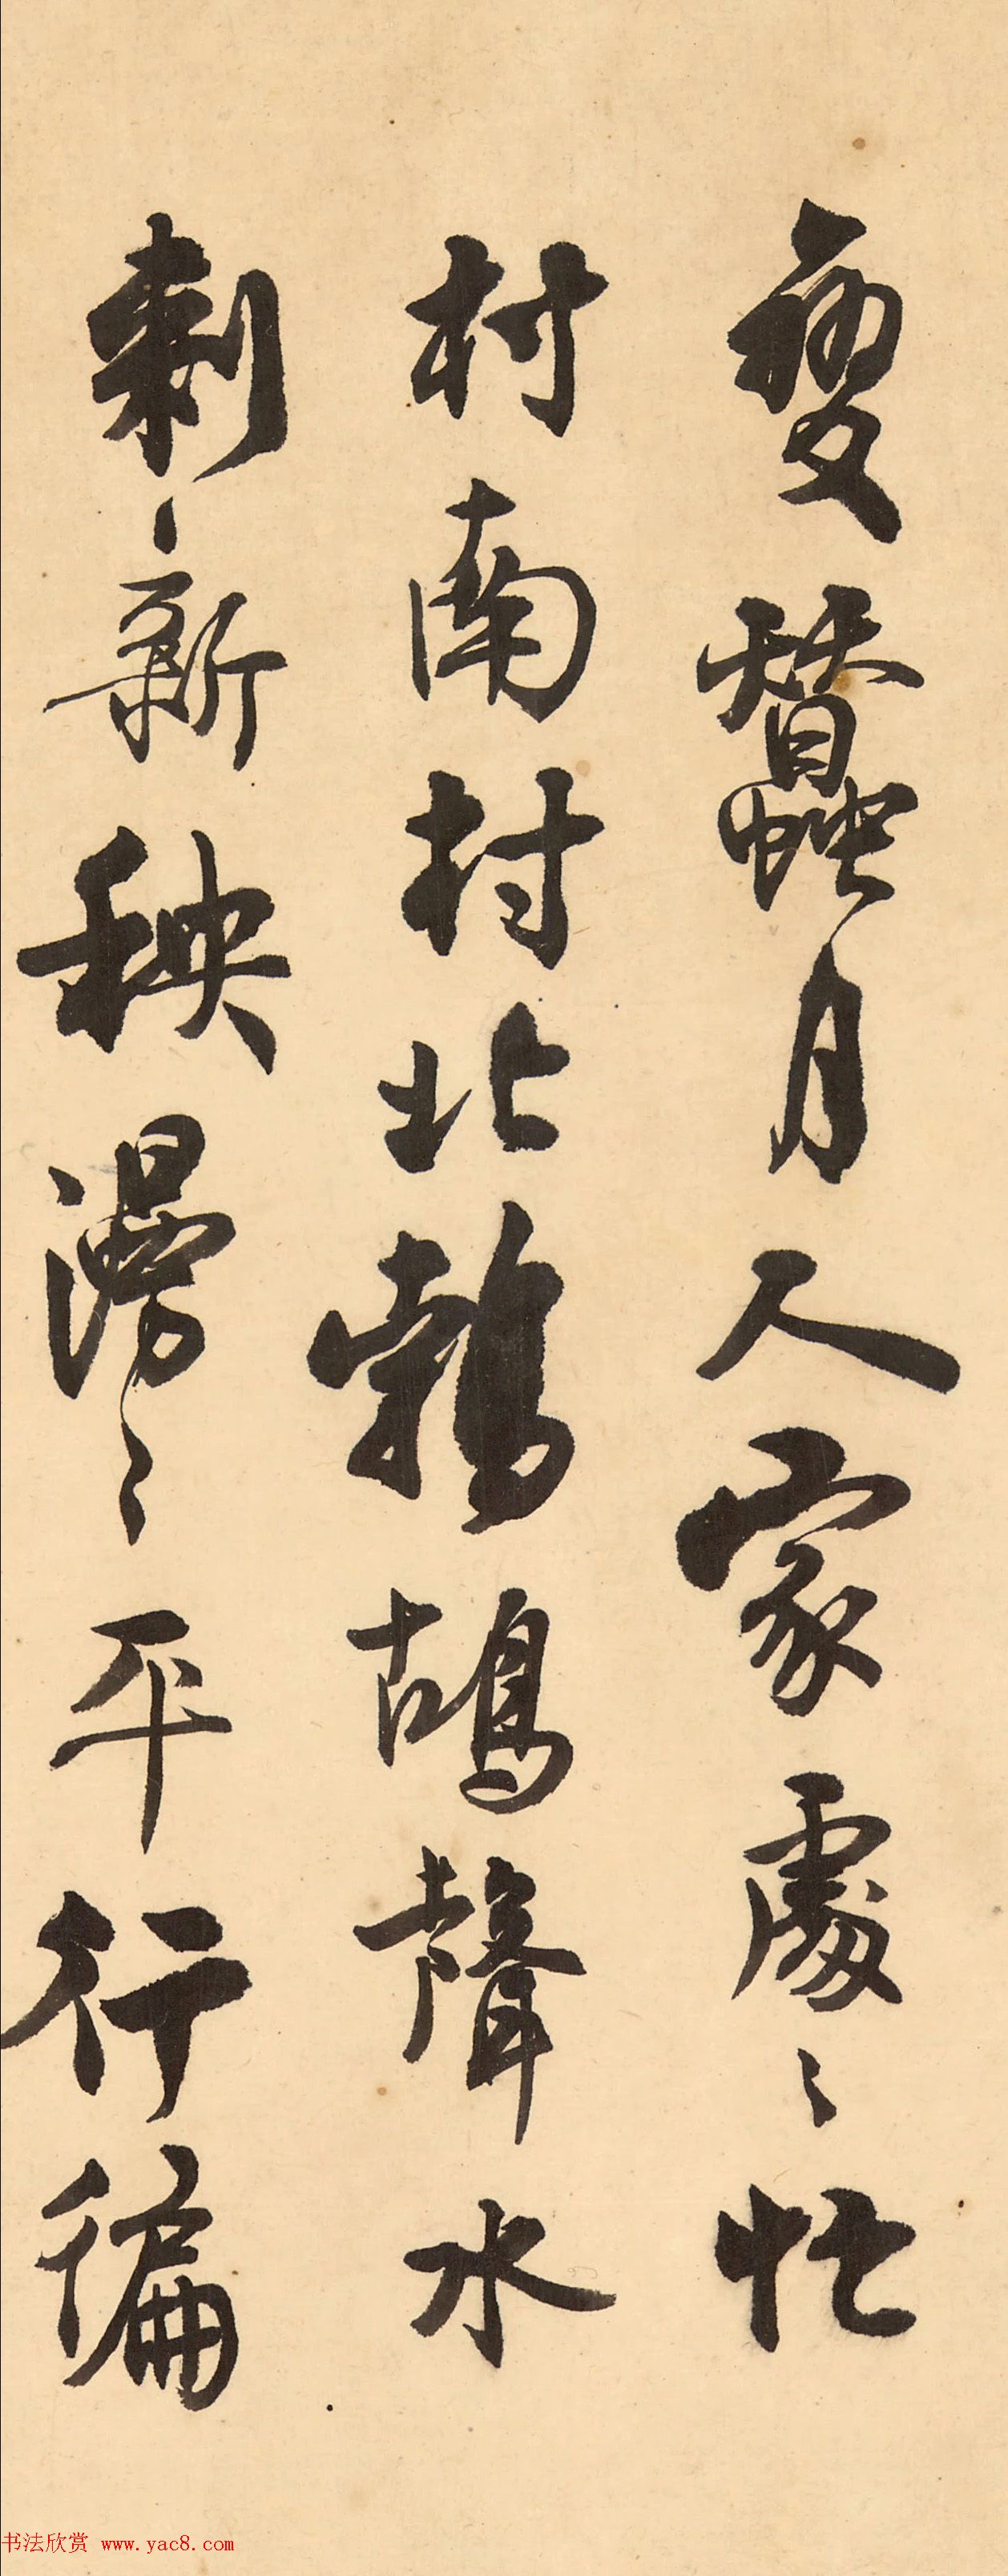 變蠶月人家處〻忙
村南村北鵓鴣聲水
刺新秧漫〻平行徧
书法欣赏 www.yac8.com